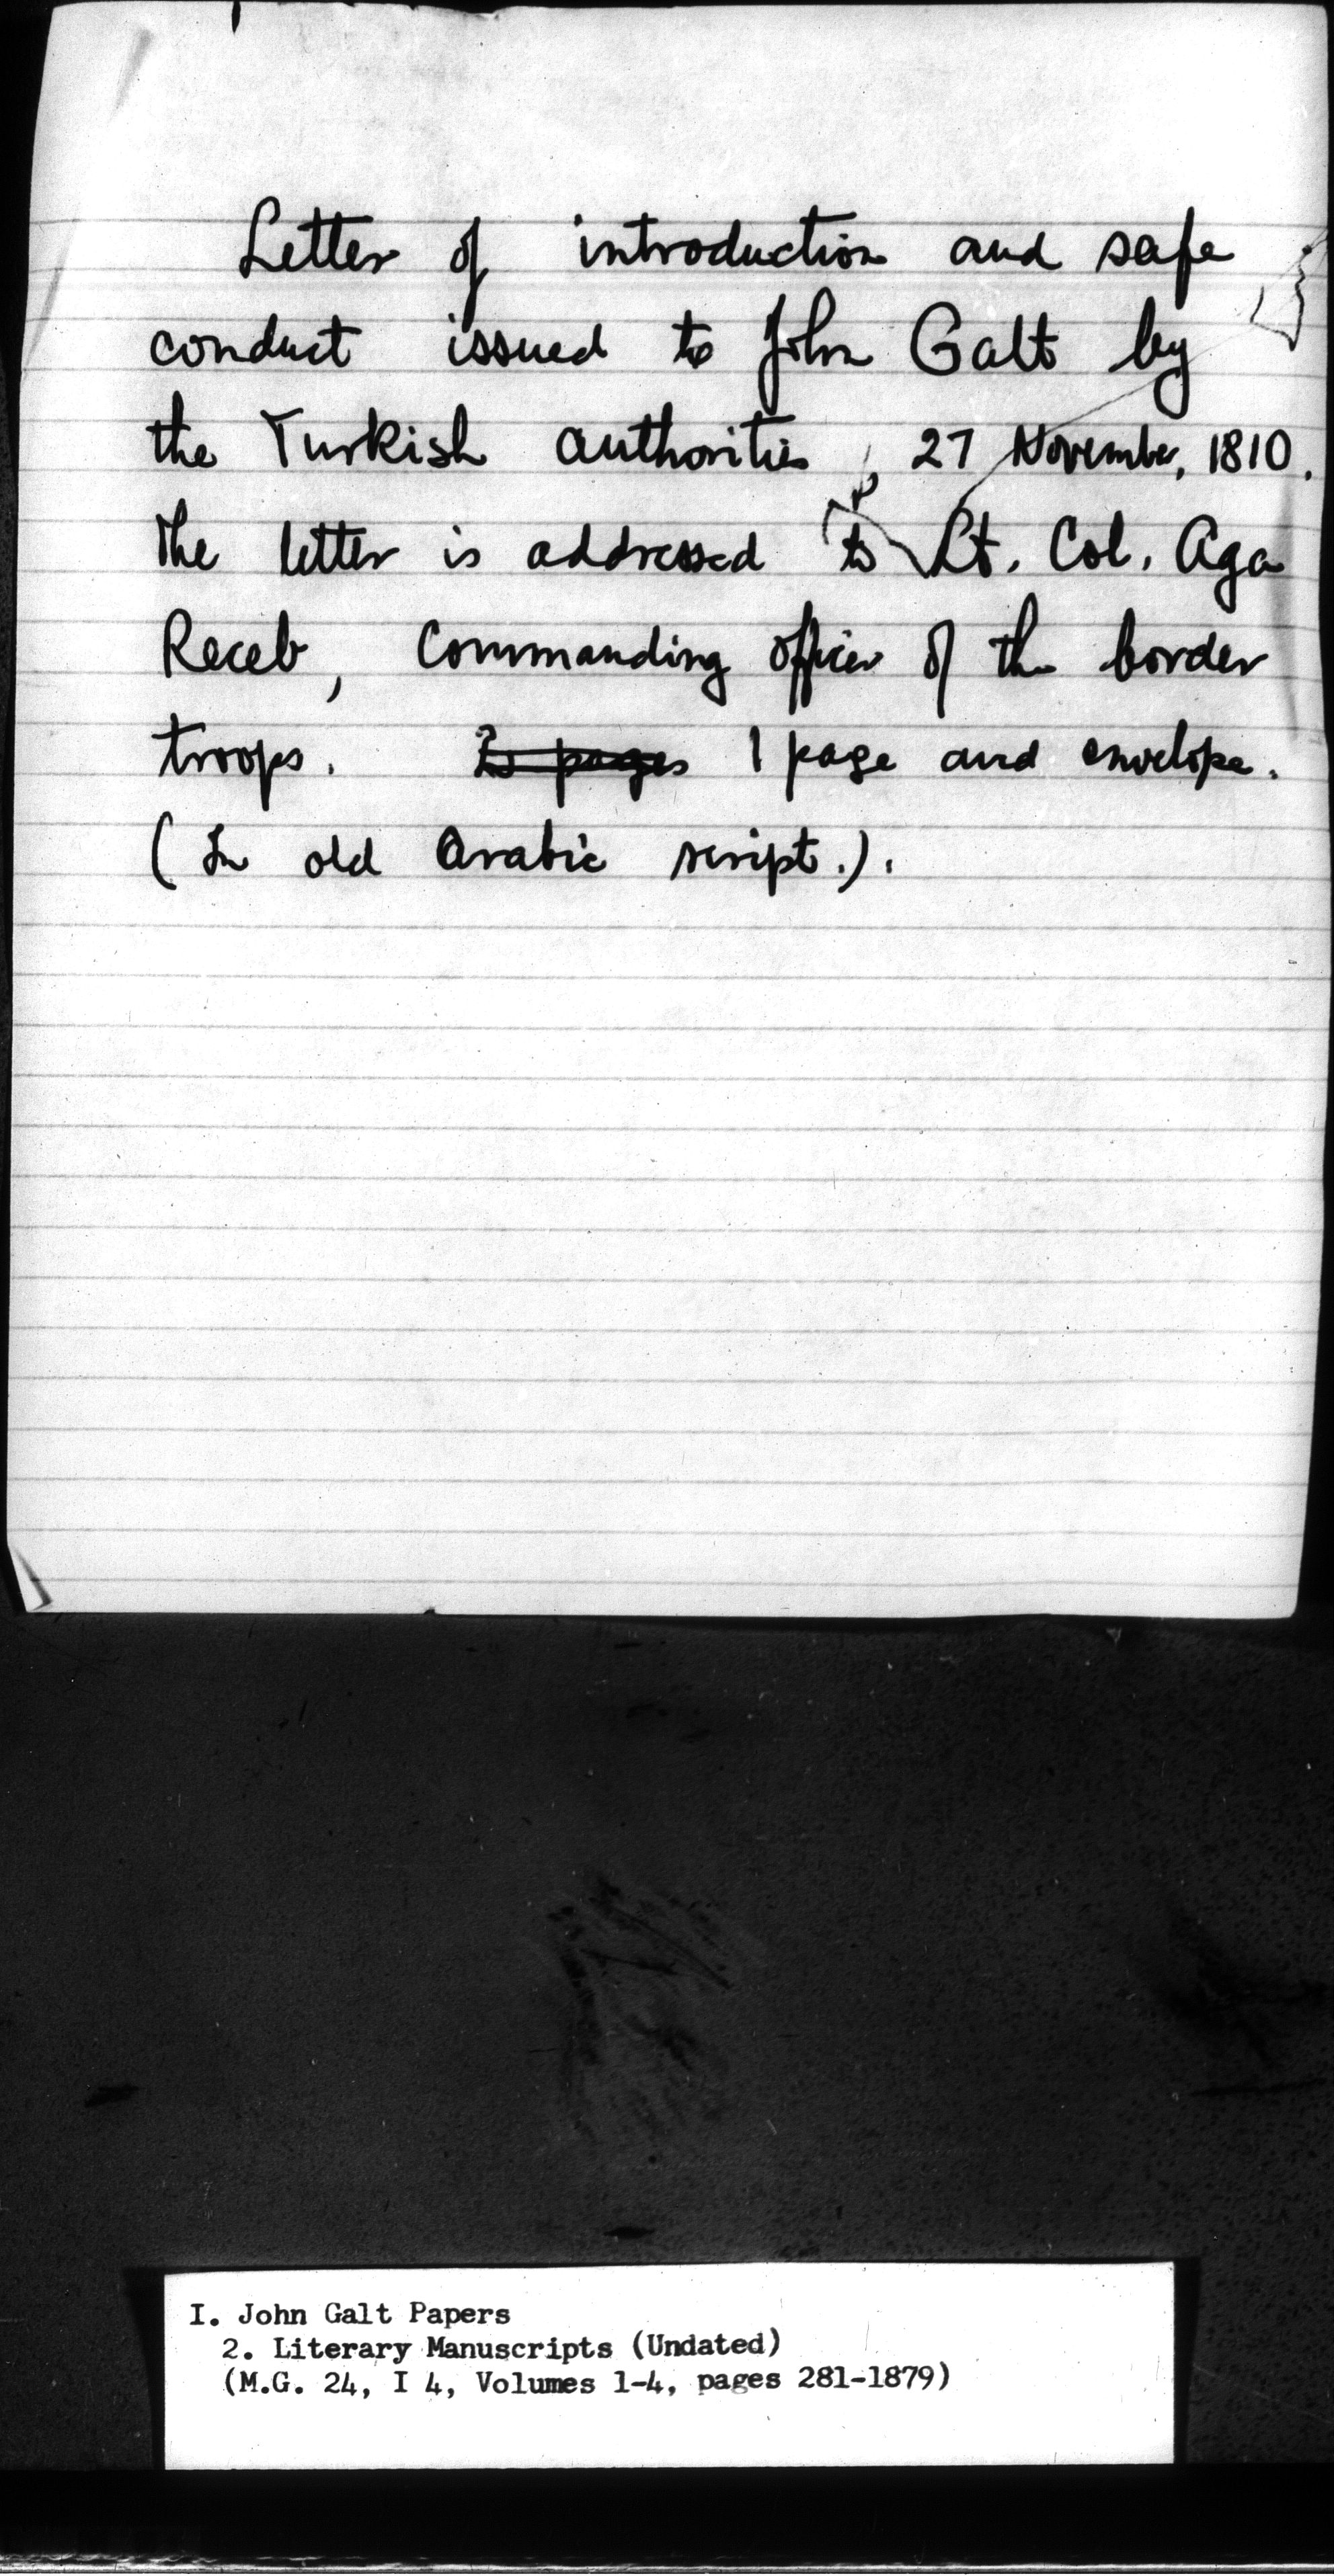 Letter of introduction and safe
conduct issued to John Galt by
the Turkish authorities, 27 November, 1810.
The letter is addressed to Lt. Col. Aga
Receb, Commanding officer of the border
troops. 1 page and envelope.
(In old Arabic script.).
I. John Galt Papers
2. Literary Manuscripts (Undated)
(M.G. 24, I 4, Volumes 1-4, pages 281-1879)